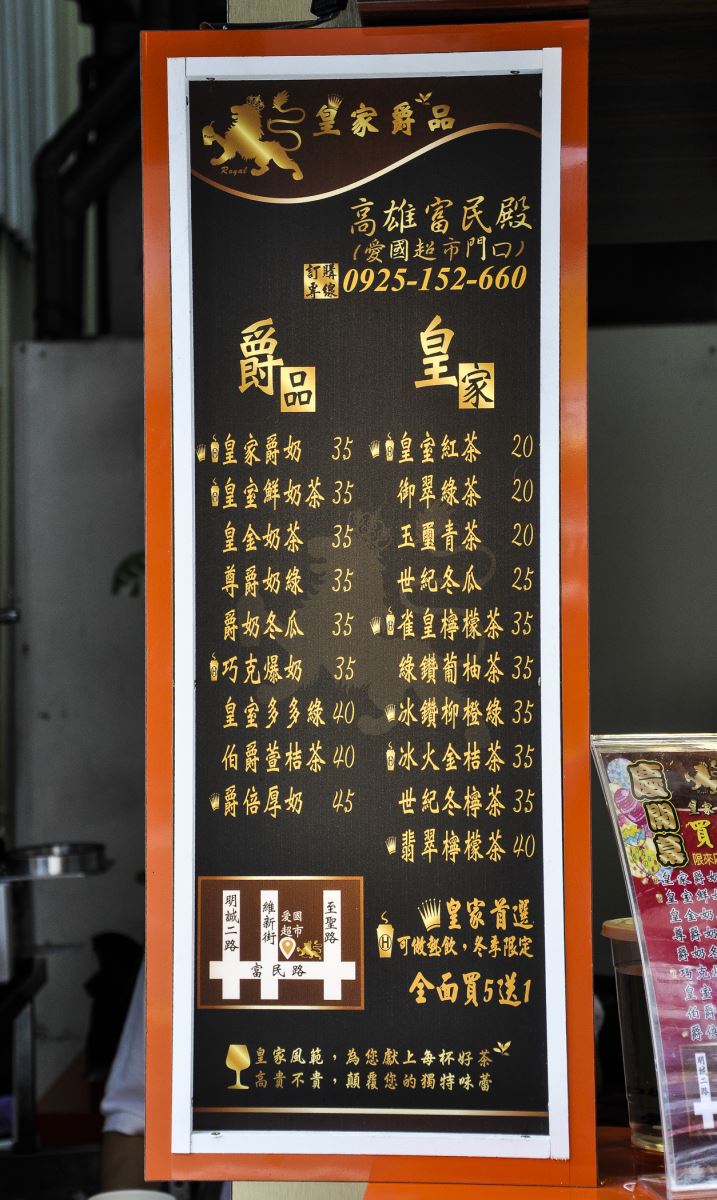 皇家爵品
Royal
高雄富民殿
(愛國超市門口)
訂購專線 0925-152-660
爵品
皇家爵奶 35
皇室鮮奶茶 35
皇金奶茶 35
尊爵奶綠 35
爵奶冬瓜 35
巧克爆奶 35
皇室多多綠 40
伯爵萱桔茶 40
爵倍厚奶 45
皇家
皇室紅茶 20
御翠綠茶 20
玉璽青茶 20
世紀冬瓜 25
雀皇檸檬茶 35
綠鑽葡柚茶 35
冰鑽柳橙綠 35
冰火金桔茶 35
世紀冬檸茶 35
翡翠檸檬茶 40
明誠二路
維新街
愛國超市
至聖路
富民路
皇家首選
H 可做熱飲，冬季限定
全面買5送1
皇家風範，為您獻上每杯好茶
高貴不貴，顛覆您的獨特味蕾
慶開幕
皇家
買
限來店
皇家爵奶
皇室鮮
皇金奶
尊爵奶
爵奶冬
巧克爆
皇室
伯爵
爵倍
明誠二路